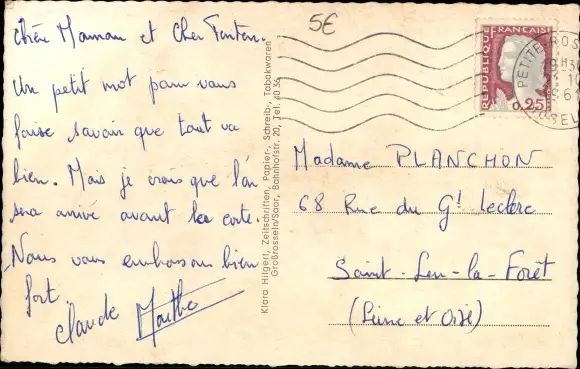 Chère Maman et Cher Tonton.
Un petit mot pour vous
faire savoir que tout va
bien. Mais je crois que l'on
sera arrivé avant la carte.
Nous vous embrassons bien
fort.
Claude Marthe
5€
Klara Hilgert, Zeitschriften, Papier-, Schreib-, Tabakwaren
Großrosseln/Saar, Bahnhofstr. 20, Tel. 40 36
REPUBLIQUE FRANÇAISE
0,25
PETITE ROSSEL
Madame PLANCHON
68 Rue du Gl Leclerc
Saint-Leu-la-Forêt
(Seine et Oise)